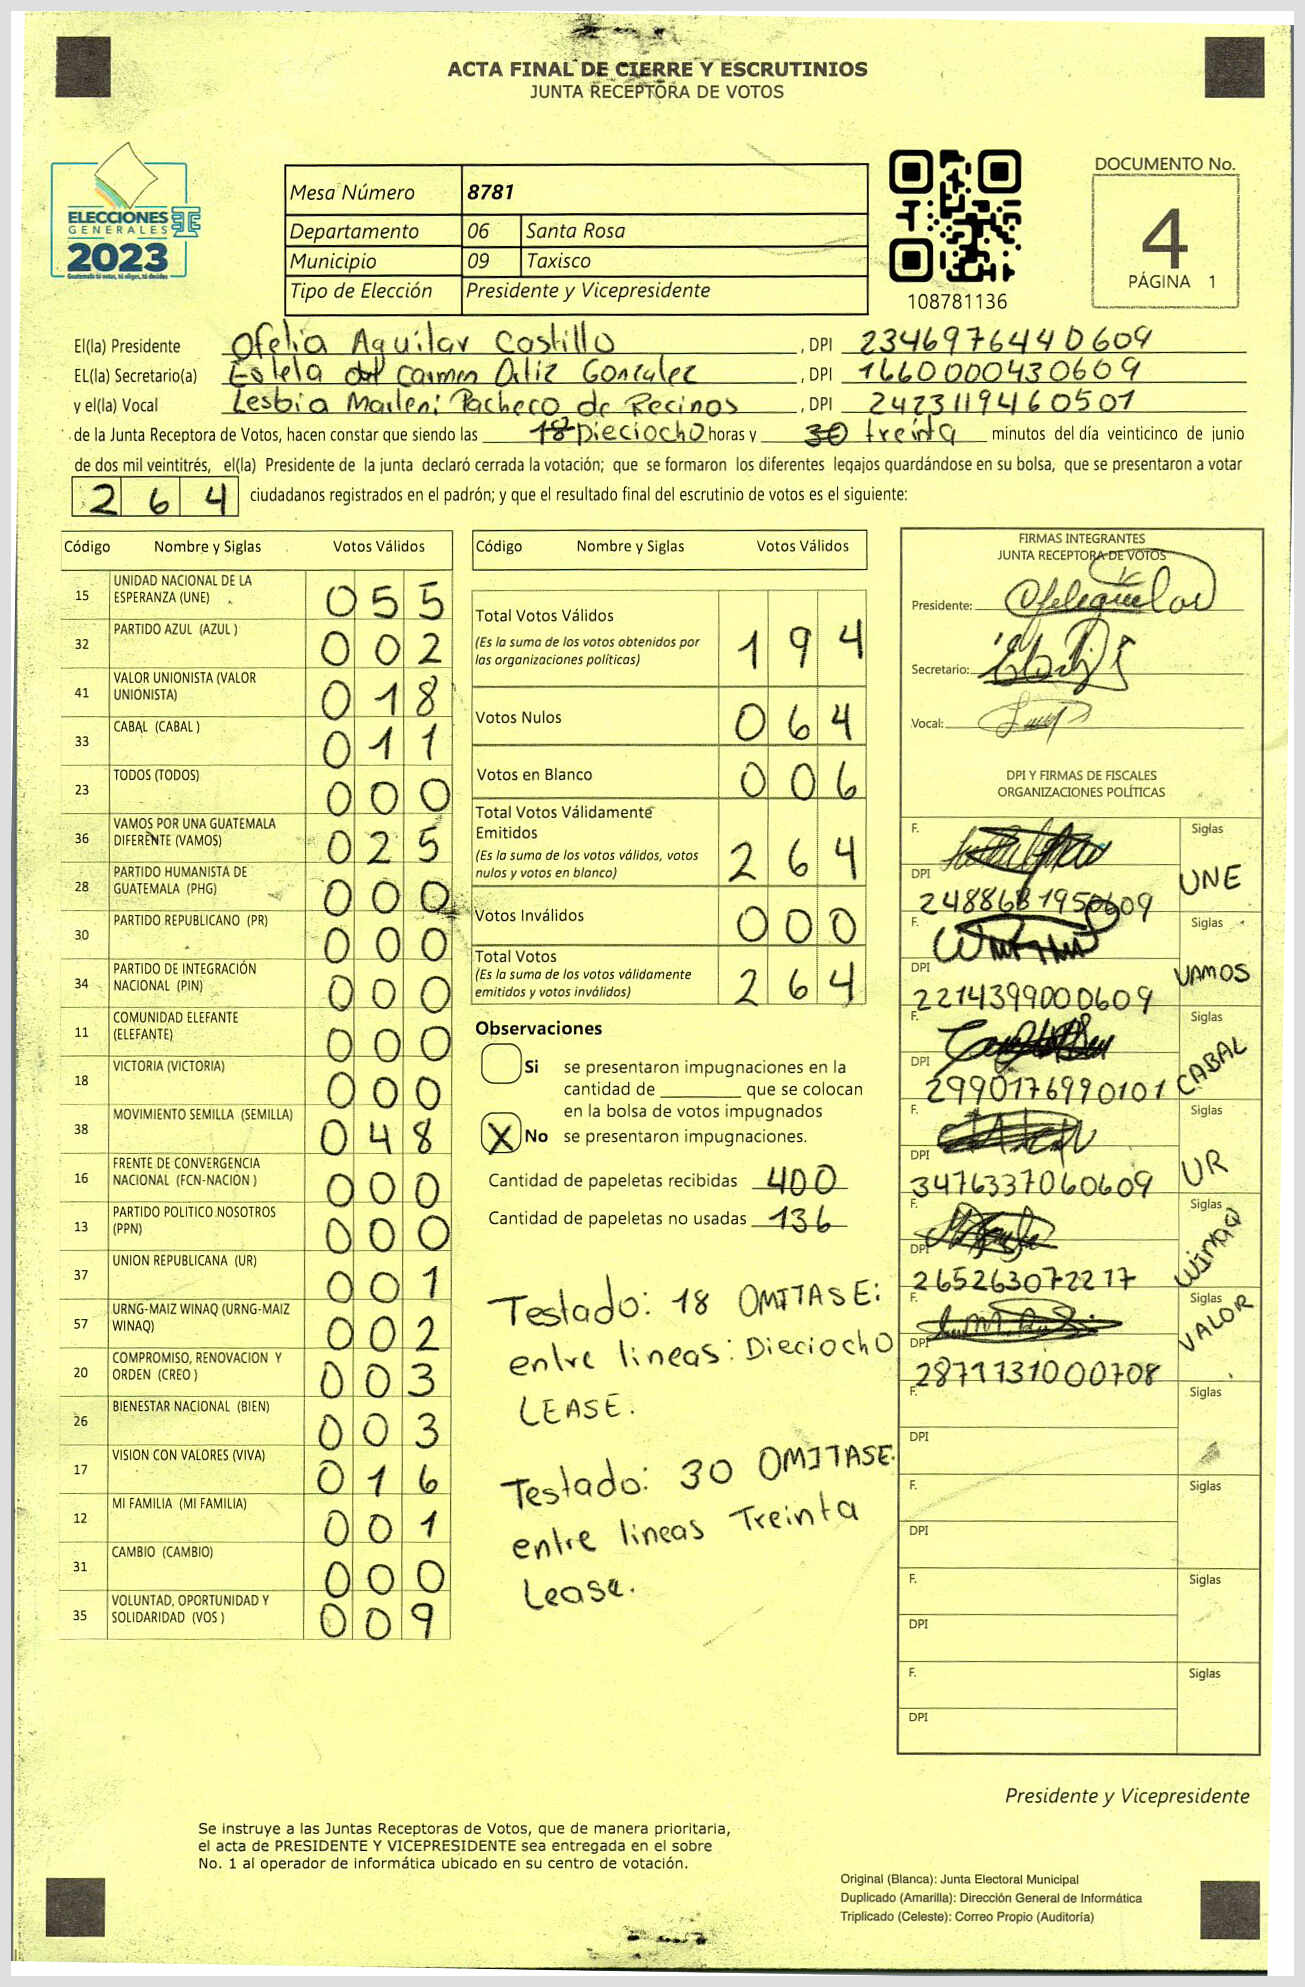 ACTA FINAL DE CIERRE Y ESCRUTINIOS
JUNTA RECEPTORA DE VOTOS
ELECCIONES
GENERALES
2023
Guatemala tú votas, tú eliges, tú decides
Mesa Número 8781
Departamento 06 Santa Rosa
Municipio 09 Taxisco
Tipo de Elección Presidente y Vicepresidente
108781136
DOCUMENTO No.
4
PÁGINA 1
El(la) Presidente Ofelia Aguilar Castillo, DPI 2346976440609
EL(la) Secretario(a) Estela del Carmen Ortiz Gonzalez, DPI 1660000430609
y el(la) Vocal Lesbia Marleni Pacheco de Recinos, DPI 2423119460501
de la Junta Receptora de Votos, hacen constar que siendo las 18 Dieciocho horas y 30 treinta minutos del día veinticinco de junio
de dos mil veintitrés, el(la) Presidente de la junta declaró cerrada la votación; que se formaron los diferentes legajos guardándose en su bolsa, que se presentaron a votar
264 ciudadanos registrados en el padrón; y que el resultado final del escrutinio de votos es el siguiente:
Código Nombre y Siglas Votos Válidos
15 UNIDAD NACIONAL DE LA ESPERANZA (UNE) 055
32 PARTIDO AZUL (AZUL ) 002
41 VALOR UNIONISTA (VALOR UNIONISTA) 018
33 CABAL (CABAL ) 011
23 TODOS (TODOS) 000
36 VAMOS POR UNA GUATEMALA DIFERENTE (VAMOS) 025
28 PARTIDO HUMANISTA DE GUATEMALA (PHG) 000
30 PARTIDO REPUBLICANO (PR) 000
34 PARTIDO DE INTEGRACIÓN NACIONAL (PIN) 000
11 COMUNIDAD ELEFANTE (ELEFANTE) 000
18 VICTORIA (VICTORIA) 000
38 MOVIMIENTO SEMILLA (SEMILLA) 048
16 FRENTE DE CONVERGENCIA NACIONAL (FCN-NACION ) 000
13 PARTIDO POLITICO NOSOTROS (PPN) 000
37 UNION REPUBLICANA (UR) 001
57 URNG-MAIZ WINAQ (URNG-MAIZ WINAQ) 002
20 COMPROMISO, RENOVACION Y ORDEN (CREO ) 003
26 BIENESTAR NACIONAL (BIEN) 003
17 VISION CON VALORES (VIVA) 016
12 MI FAMILIA (MI FAMILIA) 001
31 CAMBIO (CAMBIO) 000
35 VOLUNTAD, OPORTUNIDAD Y SOLIDARIDAD (VOS ) 009
Código Nombre y Siglas Votos Válidos
Total Votos Válidos 194
(Es la suma de los votos obtenidos por
las organizaciones políticas)
Votos Nulos 064
Votos en Blanco 006
Total Votos Válidamente
Emitidos 264
(Es la suma de los votos válidos, votos
nulos y votos en blanco)
Votos Inválidos 000
Total Votos 264
(Es la suma de los votos válidamente
emitidos y votos inválidos)
Observaciones
Si se presentaron impugnaciones en la
cantidad de ________ que se colocan
en la bolsa de votos impugnados
X No se presentaron impugnaciones.
Cantidad de papeletas recibidas 400
Cantidad de papeletas no usadas 136
Testado: 18 OMITASE:
entre lineas: Dieciocho
LEASE.
Testado: 30 OMITASE.
entre lineas Treinta
Lease.
FIRMAS INTEGRANTES
JUNTA RECEPTORA DE VOTOS
Presidente:
Secretario:
Vocal:
DPI Y FIRMAS DE FISCALES
ORGANIZACIONES POLÍTICAS
F. Siglas
DPI 2488681950609 UNE
F. Siglas
DPI 2214399000609 VAMOS
F. Siglas
DPI 2990176990101 CABAL
F. Siglas
DPI 3476337060609 UR
F. Siglas
DPI 265263072217 WINAQ
F. Siglas
DPI 2871731000708 VALOR
F. Siglas
DPI
F. Siglas
DPI
F. Siglas
DPI
F. Siglas
DPI
Presidente y Vicepresidente
Se instruye a las Juntas Receptoras de Votos, que de manera prioritaria,
el acta de PRESIDENTE Y VICEPRESIDENTE sea entregada en el sobre
No. 1 al operador de informática ubicado en su centro de votación.
Original (Blanca): Junta Electoral Municipal
Duplicado (Amarilla): Dirección General de Informática
Triplicado (Celeste): Correo Propio (Auditoría)